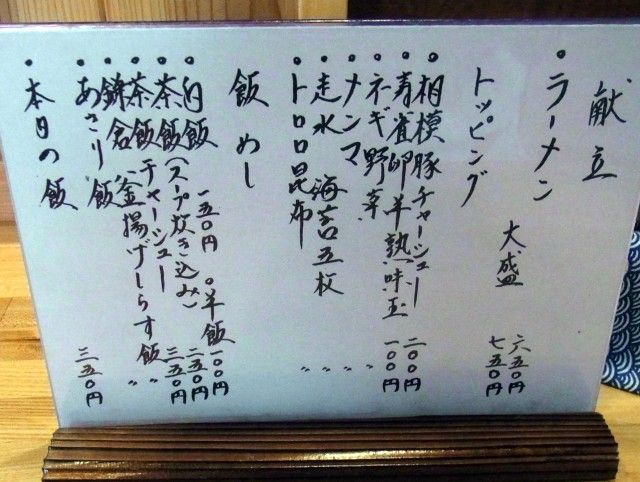 献立
・ラーメン 六五〇円
大盛 七五〇円
トッピング
・相模豚チャーシュー 二〇〇円
・青雀卵半熟味玉 一〇〇円
・ネギ野辛 〃
・メンマ 〃
・走水海苔五枚 〃
・トロロ昆布
飯めし
・白飯 一五〇円 ○半飯 一〇〇円
・茶飯(スープ炊き込み) 二五〇円
・茶飯チャーシュー 三五〇円
・鎌倉釜揚げしらす飯 〃
・あさり飯 〃
・本日の飯 三五〇円